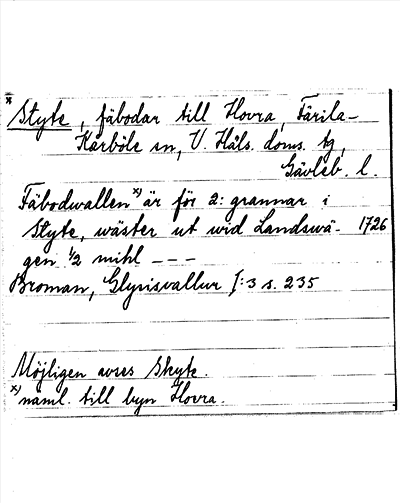 x Styte, fäbodar till Hovra, Färila-
Kårböle sn, V. Häls. doms. tg,
Gävleb. l.
Fäbodwallen x) är för 2: grannar i
Styte, wäster ut wid Landswä- 1726
gen ½ mihl - - -
Broman, Glysisvallur I:3 s. 235
Möjligen avses Skyte.
x) näml. till byn Hovra.